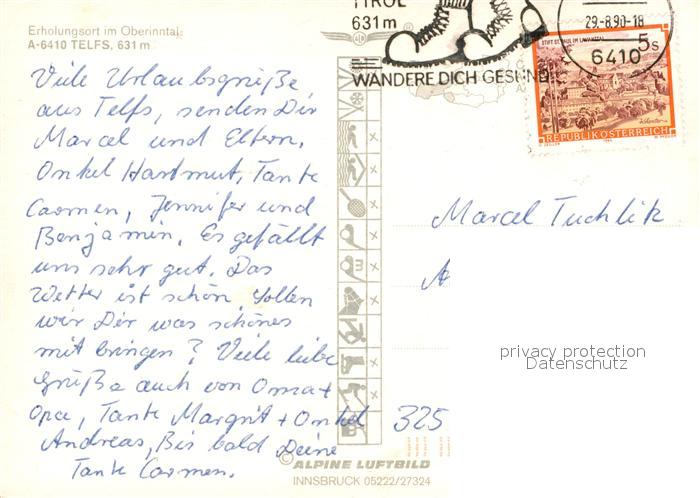 Erholungsort im Oberinntal:
A-6410 TELFS, 631 m
TIROL
631 m
WANDERE DICH GESUND
29.-8.90-18
6410
STIFT ST. PAUL IM LAVANTTAL
5 S
REPUBLIK ÖSTERREICH
Viele Urlaubsgrüße
aus Telfs, senden Dir
Marcel und Eltern,
Onkel Hartmut, Tante
Carmen, Jennifer und
Benjamin. Es gefällt
uns sehr gut. Das
Wetter ist schön. Sollen
wir Dir was schönes
mit bringen? Viele liebe
Grüße auch von Oma +
Opa, Tante Margrit + Onkel
Andreas, Bis bald Deine
Tante Carmen.
Marcel Tuchlik
A
325
privacy protection
Datenschutz
© ALPINE LUFTBILD
INNSBRUCK 05222/27324